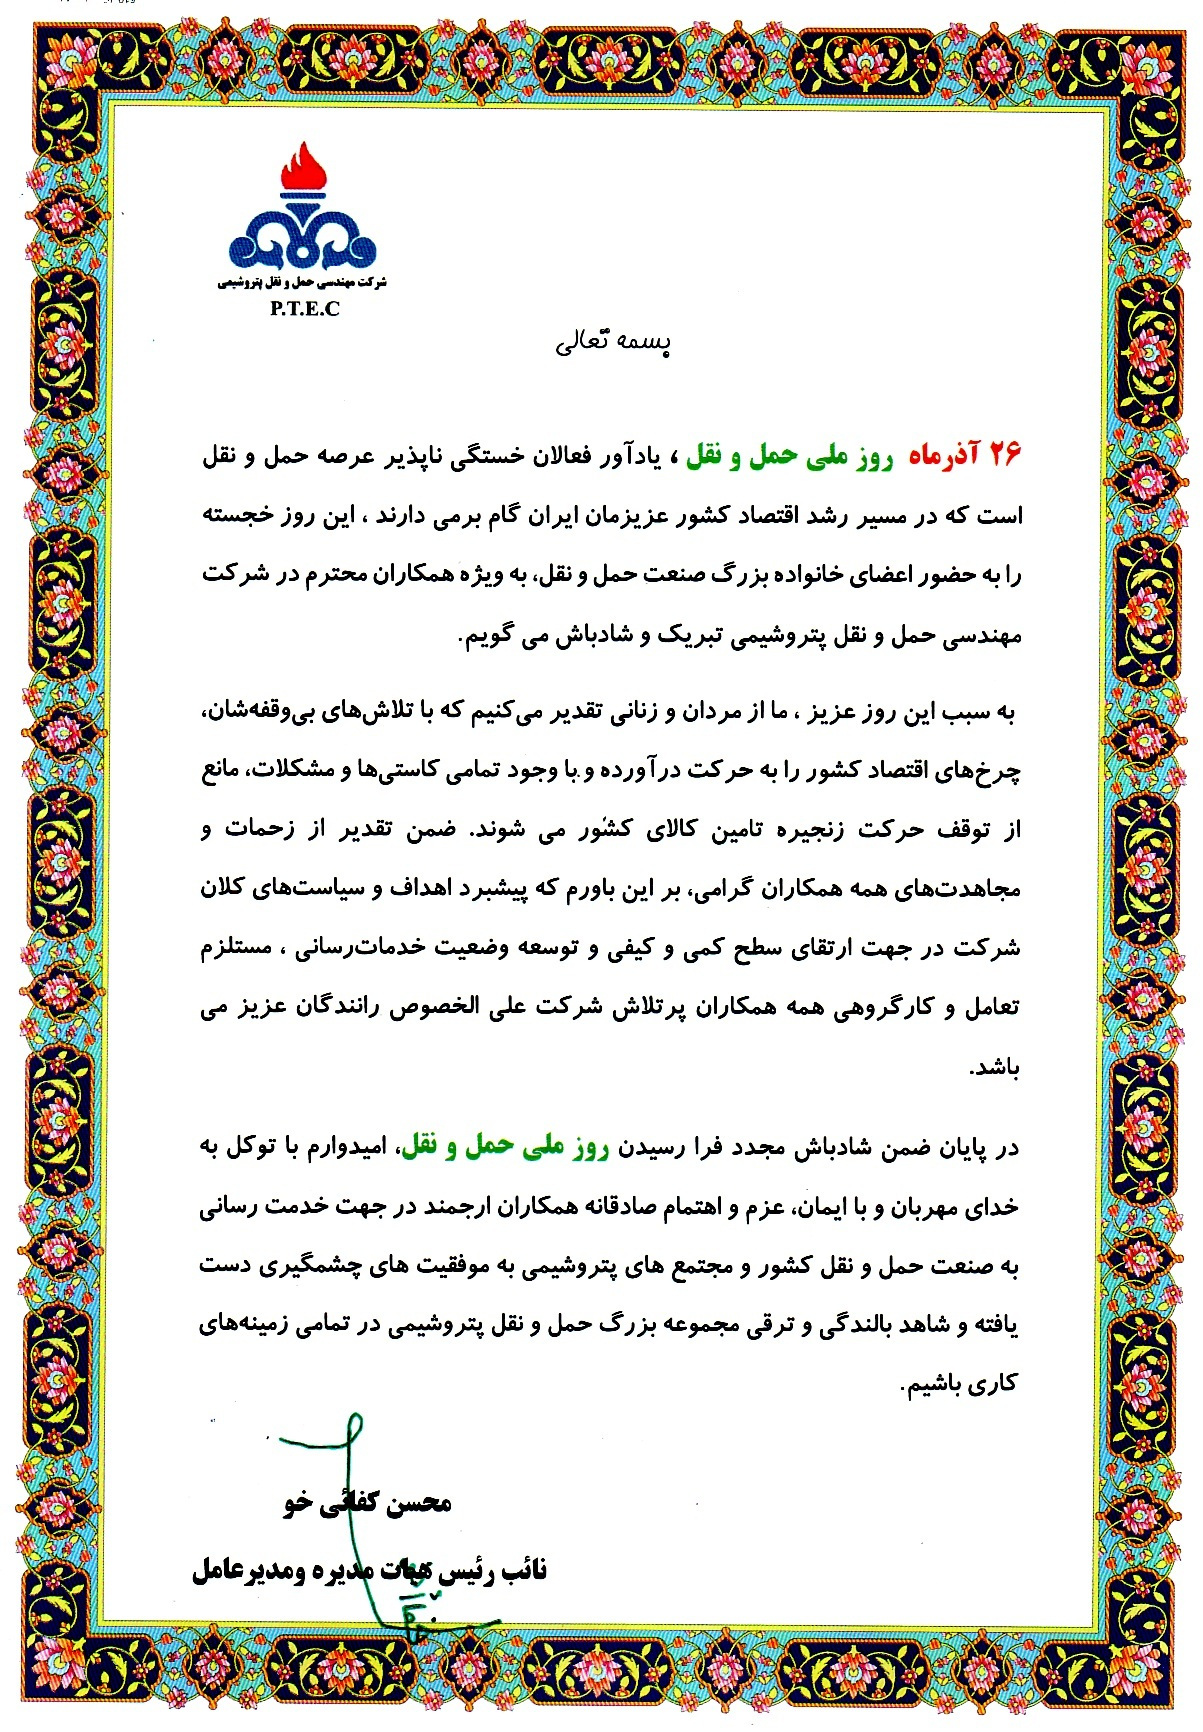 شرکت مهندسی حمل و نقل پتروشیمی
P.T.E.C
بسمه تعالی
۲۶ آذرماه روز ملی حمل و نقل ، یادآور فعالان خستگی ناپذیر عرصه حمل و نقل
است که در مسیر رشد اقتصاد کشور عزیزمان ایران گام برمی دارند ، این روز خجسته
را به حضور اعضای خانواده بزرگ صنعت حمل و نقل، به ویژه همکاران محترم در شرکت
مهندسی حمل و نقل پتروشیمی تبریک و شادباش می گویم.
به سبب این روز عزیز ، ما از مردان و زنانی تقدیر می‌کنیم که با تلاش‌های بی‌وقفه‌شان،
چرخ‌های اقتصاد کشور را به حرکت درآورده و با وجود تمامی کاستی‌ها و مشکلات، مانع
از توقف حرکت زنجیره تامین کالای کشور می شوند. ضمن تقدیر از زحمات و
مجاهدت‌های همه همکاران گرامی، بر این باورم که پیشبرد اهداف و سیاست‌های کلان
شرکت در جهت ارتقای سطح کمی و کیفی و توسعه وضعیت خدمات‌رسانی ، مستلزم
تعامل و کارگروهی همه همکاران پرتلاش شرکت علی الخصوص رانندگان عزیز می
باشد.
در پایان ضمن شادباش مجدد فرا رسیدن روز ملی حمل و نقل، امیدوارم با توکل به
خدای مهربان و با ایمان، عزم و اهتمام صادقانه همکاران ارجمند در جهت خدمت رسانی
به صنعت حمل و نقل کشور و مجتمع های پتروشیمی به موفقیت های چشمگیری دست
یافته و شاهد بالندگی و ترقی مجموعه بزرگ حمل و نقل پتروشیمی در تمامی زمینه‌های
کاری باشیم.
محسن کفائی خو
نائب رئیس هیات مدیره ومدیرعامل